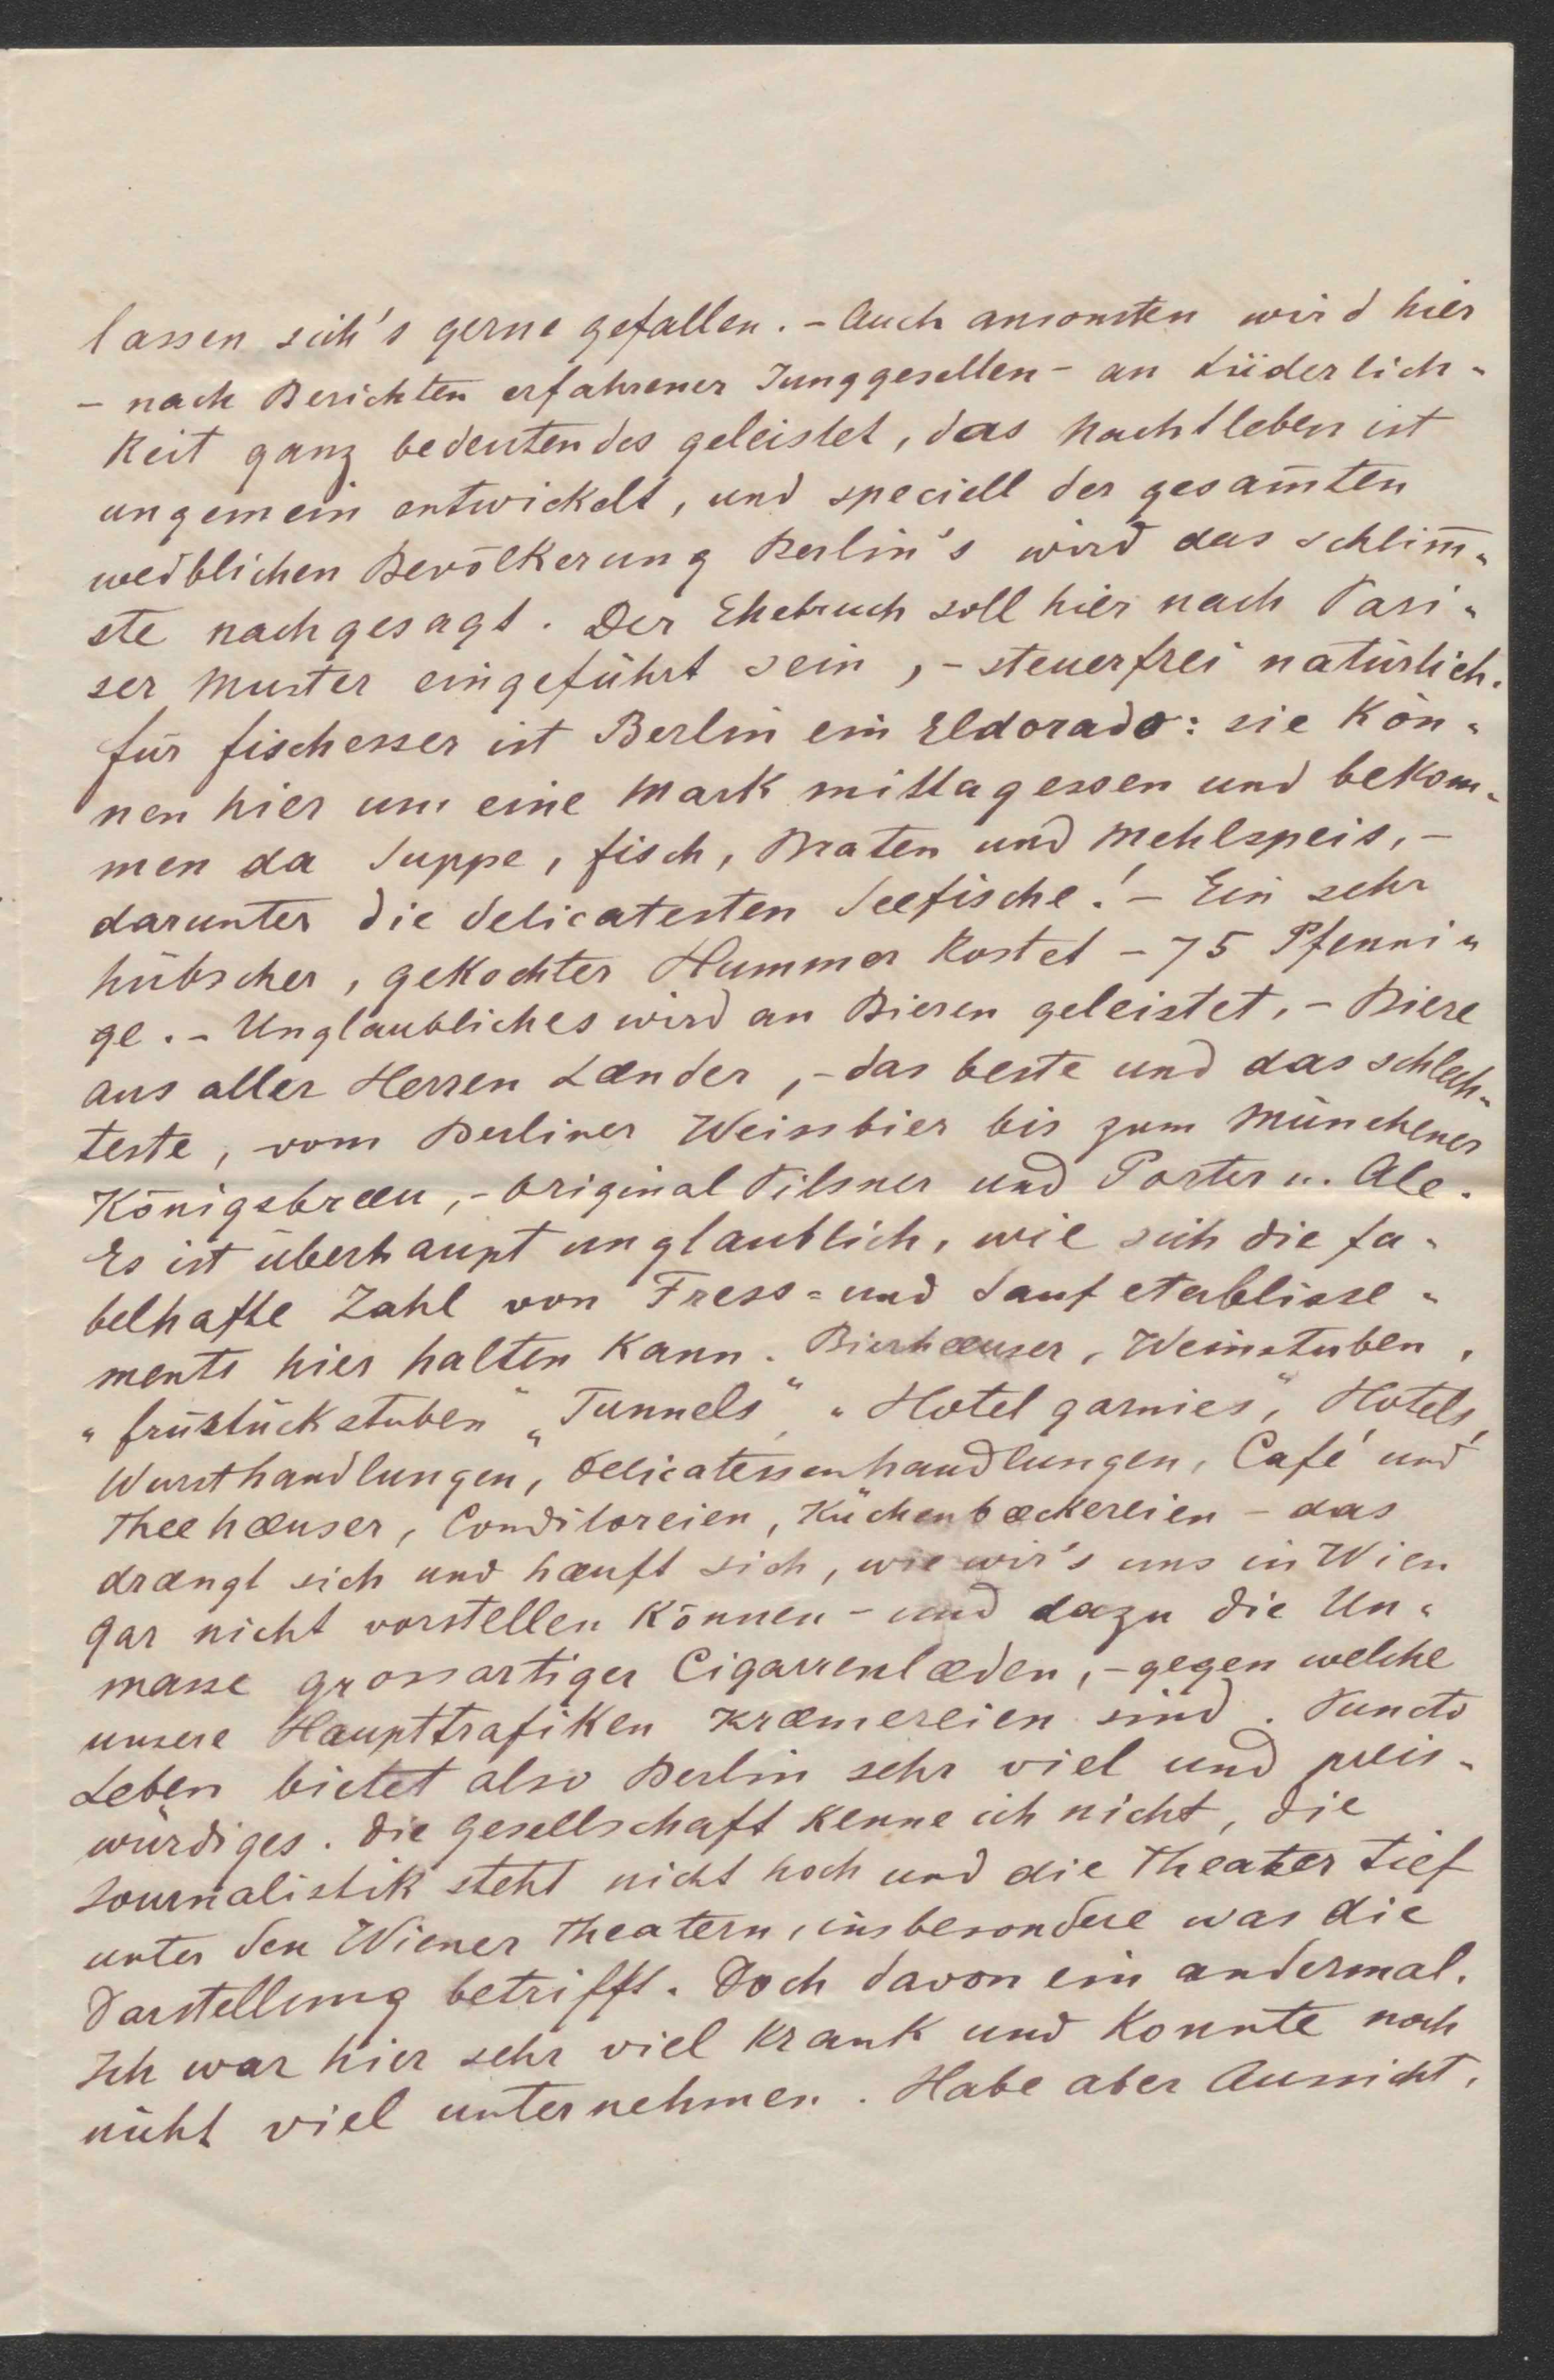 lassen sich's gerne gefallen. – Auch ansonsten wird hier
– nach Berichten erfahrener Junggesellen – an Lüderlich-
keit ganz bedeutendes geleistet, das Nachtleben ist
ungemein entwickelt, und speciell der gesam̅ten
weiblichen Bevölkerung Berlin's wird das schlim̅-
ste nachgesagt. Der Ehebruch soll hier nach Pari-
ser Muster eingeführt sein, – steuerfrei natürlich.
für fischesser ist Berlin ein Eldorado: sie kön-
nen hier um eine Mark mittagessen und bekom-
men da Suppe, fisch, Braten und Mehlspeis, –
darunter die delicatesten Seefische! – Ein sehr
hübscher, gekochter Hummer kostet – 75 Pfenni-
ge. – Unglaubliches wird an Bieren geleistet, – Biere
aus aller Herren Lænder, – das beste und das schlech-
teste, vom Berliner Weissbier bis zum Münchener
Königsbræu, – original Pilsner und Porter u. Ale.
Es ist überhaupt unglaublich, wie sich die fa-
belhafte Zahl von Fress- und Saufetablisse-
ments hier halten kann. Bierhæuser, Weinstuben,
„frühstückstuben" „Tunnels", „Hotel garnies", Hotels,
Wursthandlungen, delicatessenhandlungen, Café und
Theehæuser, Conditoreien, Kuchenbæckereien – das
drængt sich und hæuft sich, wie wir's uns in Wien
gar nicht vorstellen können – und dazu die Un-
masse grossartiger Cigarrenlæden, – gegen welche
unsere Haupttrafiken Kræmereien sind. Puncto
Leben bietet also Berlin sehr viel und preis-
würdiges. Die Gesellschaft kenne ich nicht, die
Journalistik steht nicht hoch und die Theater tief
unter den Wiener Theatern, insbesondere was die
Darstellung betrifft. Doch davon ein andermal.
Ich war hier sehr viel krank und konnte noch
nicht viel unternehmen. Habe aber Aussicht,